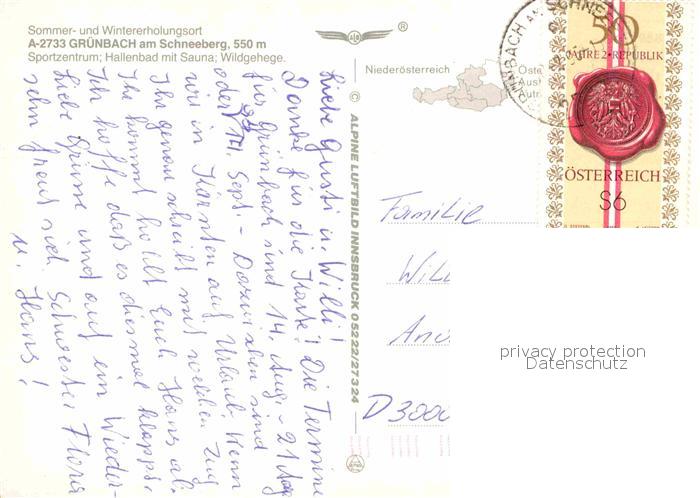 Sommer- und Wintererholungsort
A-2733 GRÜNBACH am Schneeberg, 550 m
Sportzentrum; Hallenbad mit Sauna; Wildgehege.
®
Niederösterreich
© ALPINE LUFTBILD INNSBRUCK 05222/27324
50
JAHRE 2. REPUBLIK
ÖSTERREICH
S6
Liebe Gusti u. Willi!
Danke für die Karte! Die Termine
für Grünbach sind 14. Aug. - 21 Aug
oder 14. Sept. - Dazwischen sind
wir in Kärnten auf Urlaub. Wenn
Ihr genau schreibt mit welchen Zug
Ihr kommt holt Euch Hans ab.
Ich hoffe daß es diesmal klappt.
Liebe Grüße und auf ein Wieder-
sehn freut sich Schwester Flora
u. Hans!
Familie
D 3000
privacy protection
Datenschutz